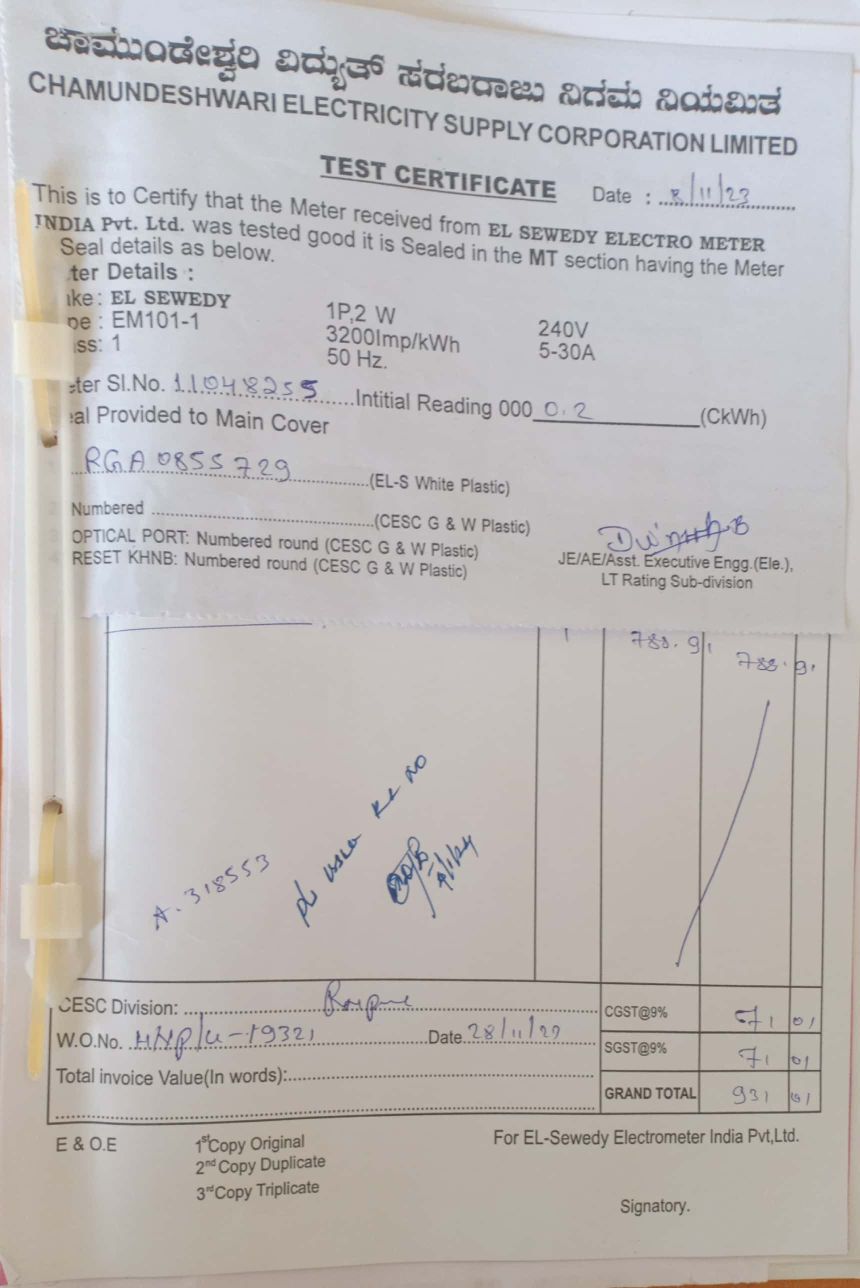 ಚಾಮುಂಡೇಶ್ವರಿ ವಿದ್ಯುತ್ ಸರಬರಾಜು ನಿಗಮ ನಿಯಮಿತ
CHAMUNDESHWARI ELECTRICITY SUPPLY CORPORATION LIMITED
TEST CERTIFICATE
Date : 8/11/23
This is to Certify that the Meter received from EL SEWEDY ELECTRO METER
INDIA Pvt. Ltd. was tested good it is Sealed in the MT section having the Meter
Seal details as below.
ter Details :
ke : EL SEWEDY 1P,2 W 240V
pe : EM101-1 3200Imp/kWh 5-30A
ss: 1 50 Hz.
ter Sl.No. 11048255 Intitial Reading 000 0.2 (CkWh)
al Provided to Main Cover
RGA 0855729 (EL-S White Plastic)
Numbered (CESC G & W Plastic)
OPTICAL PORT: Numbered round (CESC G & W Plastic)
RESET KHNB: Numbered round (CESC G & W Plastic)
JE/AE/Asst. Executive Engg.(Ele.),
LT Rating Sub-division
1 788.91
788.91
A. 318553
CESC Division:
W.O.No. Date 28/11/
Total invoice Value(In words):
CGST@9% 71 01
SGST@9% 71 01
GRAND TOTAL 931 01
E & O.E
1st Copy Original
2nd Copy Duplicate
3rd Copy Triplicate
For EL-Sewedy Electrometer India Pvt,Ltd.
Signatory.